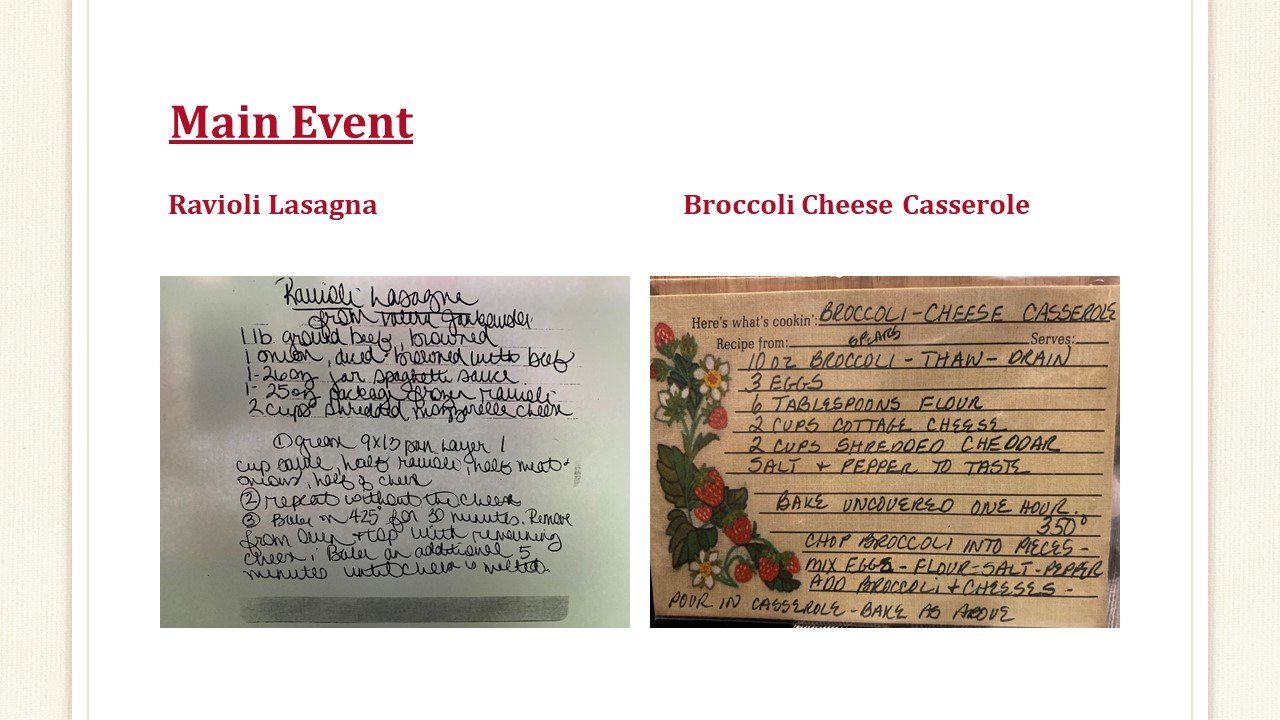 Main Event
Ravioli Lasagna
Ravioli Lasagna
from
1 lb. ground beef, browned
1 onion, diced, browned with beef
1-26oz jar spaghetti sauce
1- 25oz package frozen ravioli
2 cups shredded mozzarella cheese
① grease 9x13 pan Layer 1
cup sauce, half ravioli, half meat +
onions, half of cheese
② repeat without the cheese
③ Bake on 425° for 30 minutes. Remove
from oven + top with remaining
cheese. Bake an additional 5
minutes until cheese is melted.
Broccoli Cheese Casserole
Here's what's cookin': BROCCOLI-CHEESE CASSEROLE
Recipe from: Serves:
SPEARS
10 oz BROCCOLI - THAW - DRAIN
3 EGGS
6 TABLESPOONS FLOUR
2 CUPS COTTAGE CHEESE
2 CUPS SHREDDED CHEDDAR
SALT + PEPPER TO TASTE
BAKE UNCOVERED ONE HOUR.
350°
CHOP BROCCOLI INTO PIECES -
MIX EGGS - FLOUR - SALT - PEPPER
ADD BROCCOLI + CHEESES -
POUR IN CASSEROLE - BAKE AS ABOVE